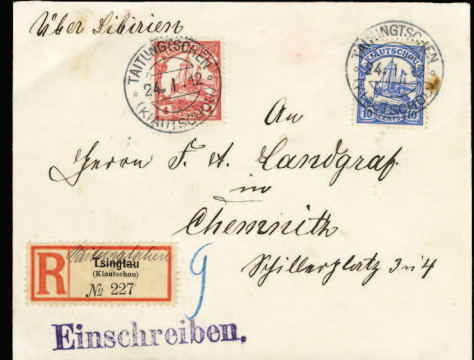 Über Sibirien
TAITUNGTSCHEN
24. 1. 12
(KIAUTSCHOU)
TAITUNGTSCHEN
24. 1.
(KIAUTSCHOU)
KIAUTSCHOU
10 CENTS 10
An
Herrn F. A. Landgraf
in
Chemnitz
Schillerplatz 3 u 4
R
Taitungtschen
Tsingtau
(Kiautschou)
№ 227
9
Einschreiben.